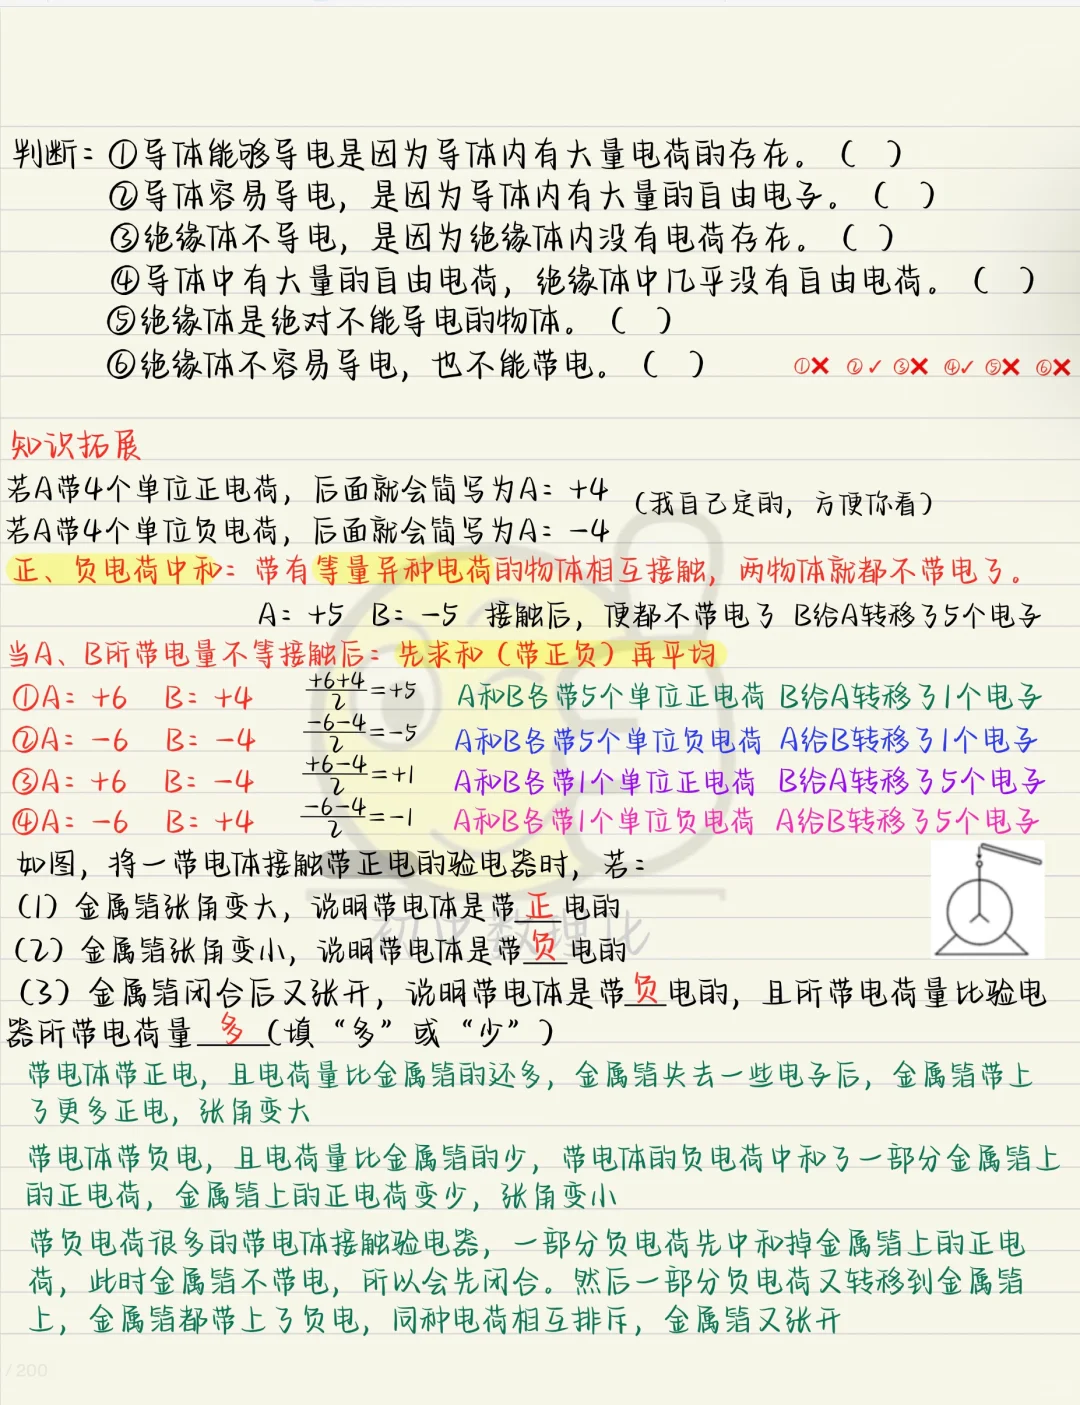 判断：①导体能够导电是因为导体内有大量电荷的存在。（ ）
②导体容易导电，是因为导体内有大量的自由电子。（ ）
③绝缘体不导电，是因为绝缘体内没有电荷存在。（ ）
④导体中有大量的自由电荷，绝缘体中几乎没有自由电荷。（ ）
⑤绝缘体是绝对不能导电的物体。（ ）
⑥绝缘体不容易导电，也不能带电。（ ） ①❌ ②✓ ③❌ ④✓ ⑤❌ ⑥❌
知识拓展
若A带4个单位正电荷，后面就会简写为A：+4
（我自己定的，方便你看）
若A带4个单位负电荷，后面就会简写为A：-4
正、负电荷中和：带有等量异种电荷的物体相互接触，两物体就都不带电了。
A：+5 B：-5 接触后，便都不带电了 B给A转移了5个电子
当A、B所带电量不等接触后：先求和（带正负）再平均
①A：+6 B：+4 (+6+4)/2=+5 A和B各带5个单位正电荷 B给A转移了1个电子
②A：-6 B：-4 (-6-4)/2=-5 A和B各带5个单位负电荷 A给B转移了1个电子
③A：+6 B：-4 (+6-4)/2=+1 A和B各带1个单位正电荷 B给A转移了5个电子
④A：-6 B：+4 (-6-4)/2=-1 A和B各带1个单位负电荷 A给B转移了5个电子
如图，将一带电体接触带正电的验电器时，若：
（1）金属箔张角变大，说明带电体是带正电的
初中数理化
（2）金属箔张角变小，说明带电体是带负电的
（3）金属箔闭合后又张开，说明带电体是带负电的，且所带电荷量比验电
器所带电荷量多（填“多”或“少”）
带电体带正电，且电荷量比金属箔的还多，金属箔失去一些电子后，金属箔带上
了更多正电，张角变大
带电体带负电，且电荷量比金属箔的少，带电体的负电荷中和了一部分金属箔上
的正电荷，金属箔上的正电荷变少，张角变小
带负电荷很多的带电体接触验电器，一部分负电荷先中和掉金属箔上的正电
荷，此时金属箔不带电，所以会先闭合。然后一部分负电荷又转移到金属箔
上，金属箔都带上了负电，同种电荷相互排斥，金属箔又张开
/ 200